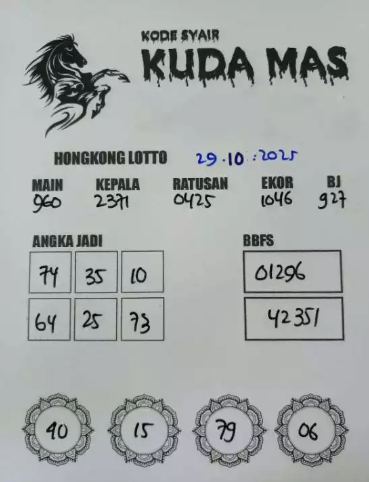 KODE SYAIR
KUDA MAS
HONGKONG LOTTO 29.10.:2025
MAIN KEPALA RATUSAN EKOR BJ
960 2371 0425 1046 927
ANGKA JADI BBFS
74 35 10 01296
64 25 73 42351
40 15 79 06